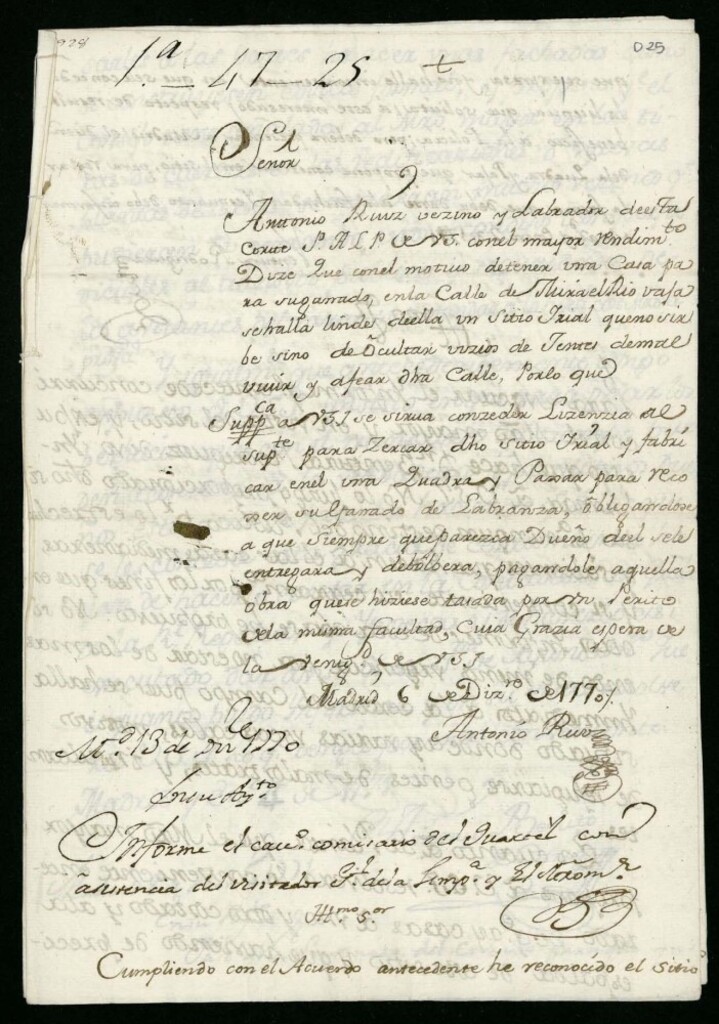 928
D25
1.ª 47 25 +
Señor
Anttonio Ruiz vezino y Labrador deesta
Corte P. A L P de VSI. conel mayor rendim.to
Dize Que conel motivo detener una Casa pa
ra suganado, enla Calle de MiraelRio vaja
sehalla linde deella un Sitio Erial queno sir
be sino de Ocultar vizios de Jentes demal
vivir y afear dha Calle, Porlo que
Supp.ca a VSI se sirva conzeder Lizenzia al
sup.te para Zercar dho sitio Erial y fabri
car enel una Quadra y Pajar para reco
jer suGanado de Labranza, obligandose
a que siempre queparezca Dueño deel sele
entregara y debolbera, pagandole aquella
obra quese hiziese tasada por un Perito
dela misma facultad, Cuia Grazia espera de
la venig.d de VSI
Madrid 6 de Diz.re de 1770
Antonio Ruiz
M.d 13 de Dic.re 1770
En su Ay.to
Informe el cav.o comisario del Quartel con
asistencia del visitador G.l de la Limp.a y El Ma.or m.r
Ill.mo S.or
Cumpliendo con el Acuerdo antecedente he reconocido el sitio